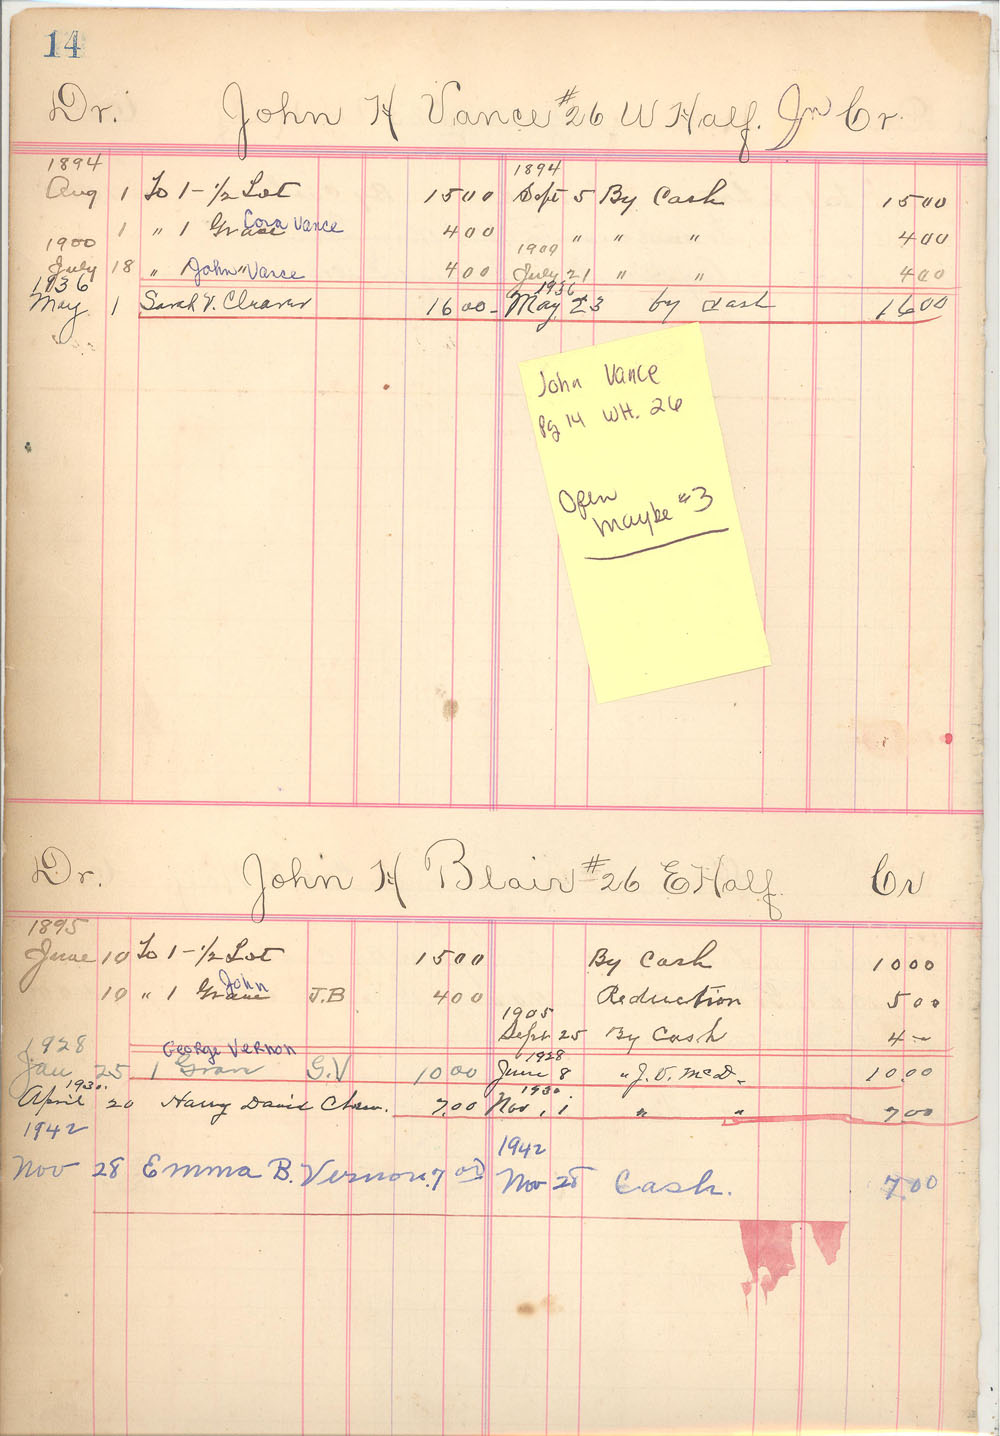 14
Dr. John H Vance #26 W Half. Jnr Cr.
1894 1894
Aug 1 To 1-½ Lot 1500 Sept 5 By Cash 1500
1 " 1 Grave Cora Vance 400 " " " 400
1900 1900
July 18 " John " Vance 400 July 21 " " 400
1936 1936
May 1 Sarah V. Cleaver 16 00 May 23 by Cash 16 00
John Vance
Pg 14 WH. 26
Open
Maybe #3
Dr. John H Blair #26 E Half Cr
1895
June 10 To 1-½ Lot 1500 By Cash 1000
10 " 1 Grave John J.B 400 Reduction 500
1905
Sept 25 By Cash 4-
1928 George Vernon 1928
Jan 25 1 Grave G.V 10 00 June 8 " J. V. McD. 10.00
1930. 1930.
April 20 Harry David 7.00 Nov. 1 " " 7 00
1942 1942
Nov 28 Emma B. Vernon. 7 00 Nov 28 Cash. 7.00